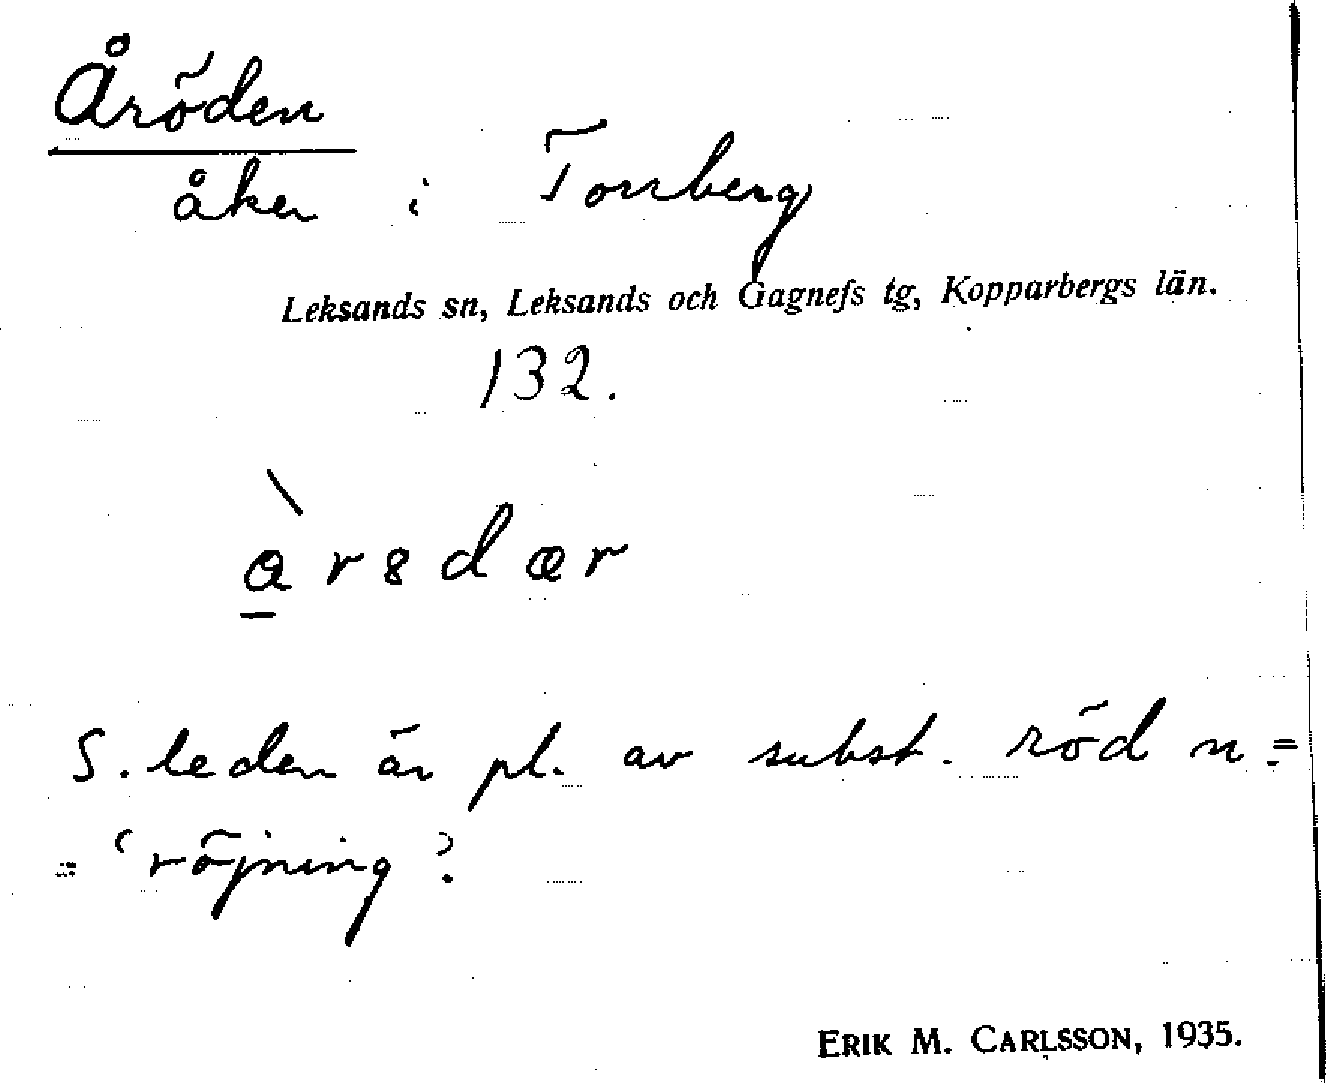 Åröden
åker i Torrberg
Leksands sn, Leksands och Gagnefs tg, Kopparbergs län.
132.
S. leden är pl. av subst. röd n. =
= 'röjning'.
ERIK M. CARLSSON, 1935.